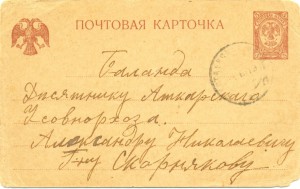 ПОЧТОВАЯ КАРТОЧКА
Баланда
Десятнику Аткарскаго
Усовнорхоза.
Александру Николаевичу
Г-ну Скорнякову